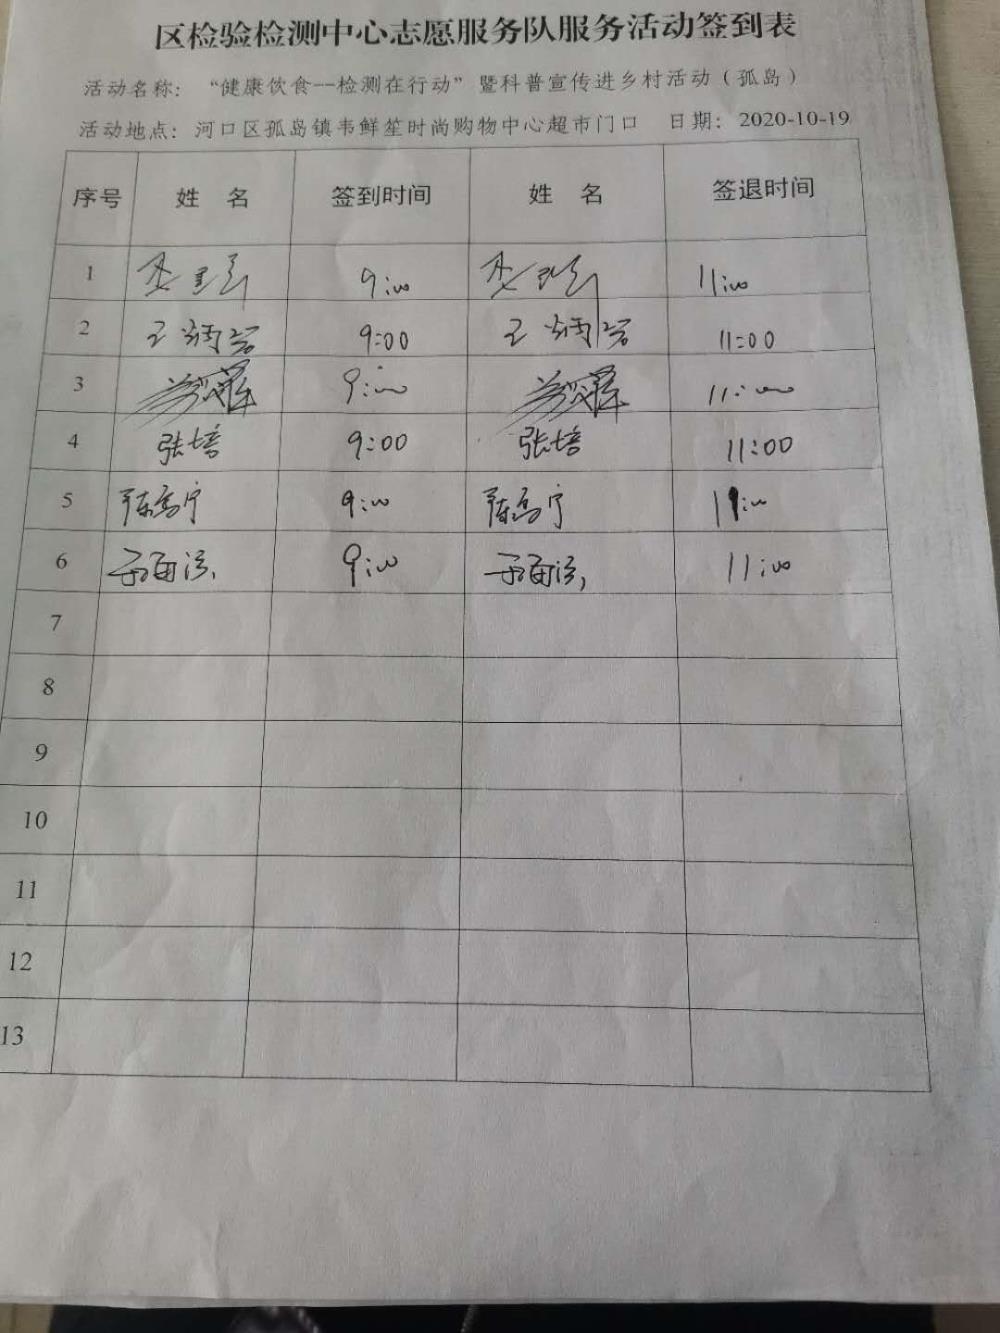 区检验检测中心志愿服务队服务活动签到表
活动名称：“健康饮食--检测在行动”暨科普宣传进乡村活动（孤岛）
活动地点：河口区孤岛镇韦鲜笙时尚购物中心超市门口 日期：2020-10-19
序号 姓 名 签到时间 姓 名 签退时间
1 9:00 11:00
2 王炳岩 9:00 王炳岩 11:00
3 9:00 11:00
4 张培 9:00 张培 11:00
5 9:00 11:00
6 9:00 11:00
7
8
9
10
11
12
13